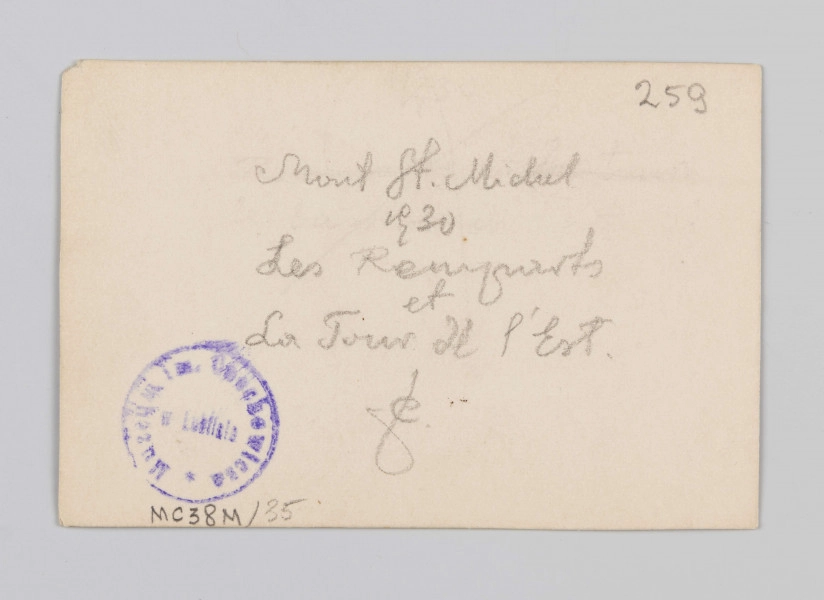 259
Mont St. Michel
1930
Les Remparts
et
La Tour de l'Est.
Muzeum Im. Czechowicza *
w Lublinie
MC38M/35